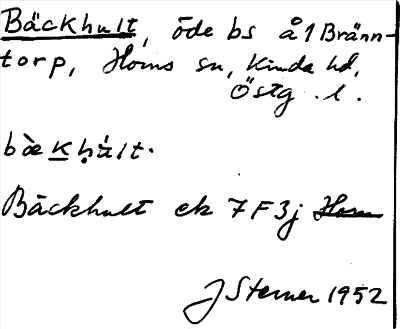 Bäckhult, öde bs å 1 Bränn-
torp, Horns sn, Kinda hd,
Östg. l.
bæ̀khúlt.
Bäckhult ek 7F3j Horn
J Sterner 1952